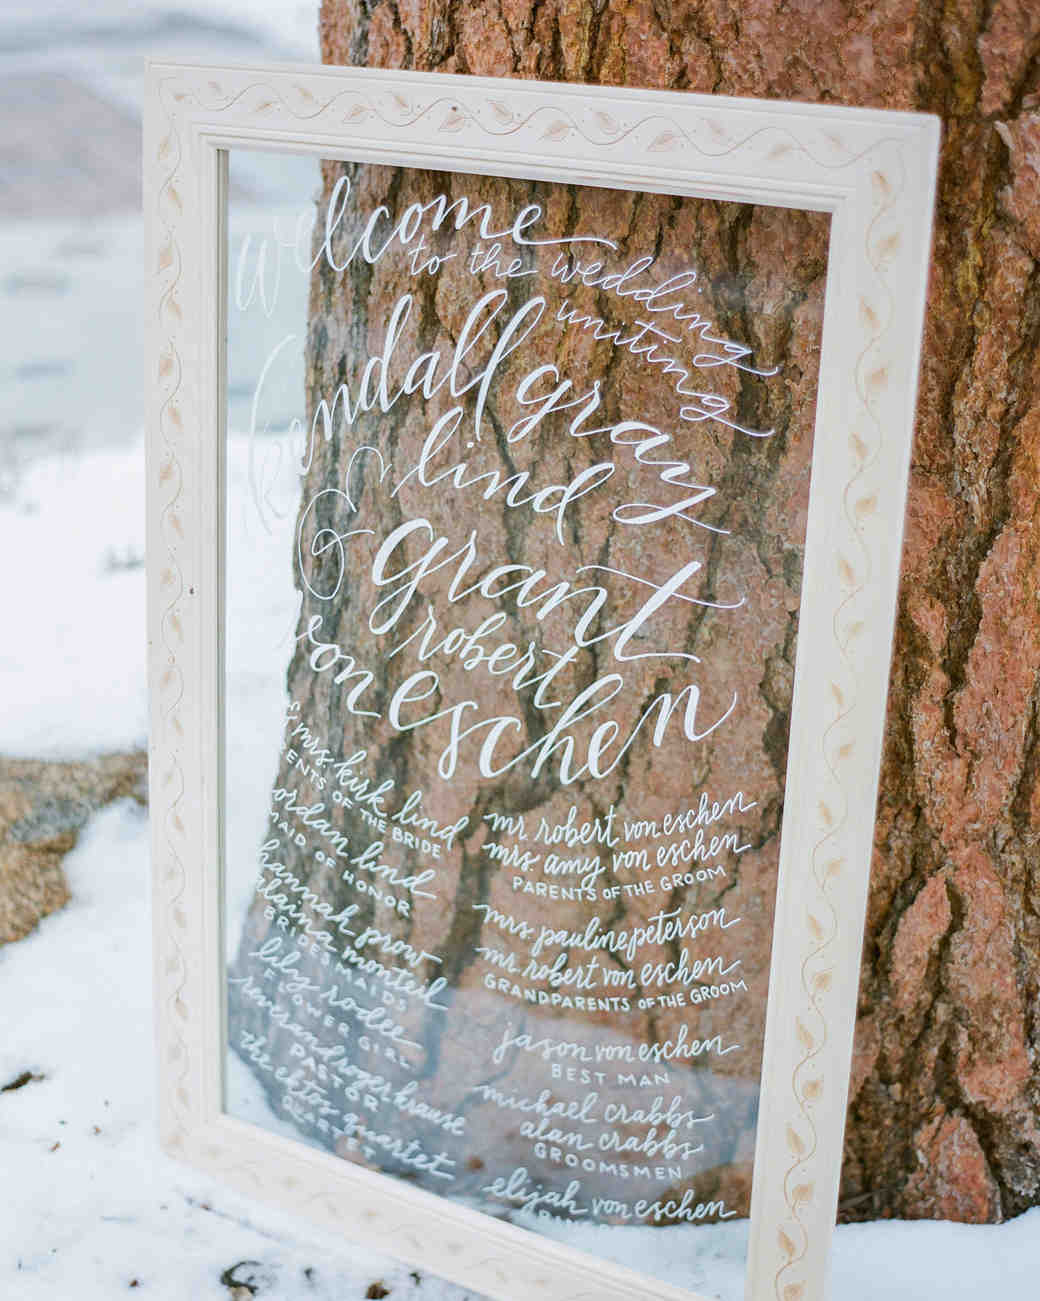 welcome
to the wedding
uniting
kendall gray
lind
&
grant
robert
von eschen
mrs. kirk lind
PARENTS OF THE BRIDE
jordan lind
MAID OF HONOR
hannah prow
alaina monteil
BRIDESMAIDS
lily rodee
FLOWER GIRL
reverand roger krause
PASTOR
the ektos quartet
QUARTET
mr robert von eschen
mrs. amy von eschen
PARENTS OF THE GROOM
mrs. pauline peterson
mr robert von eschen
GRANDPARENTS OF THE GROOM
jason von eschen
BEST MAN
michael crabbs
alan crabbs
GROOMSMEN
elijah von eschen